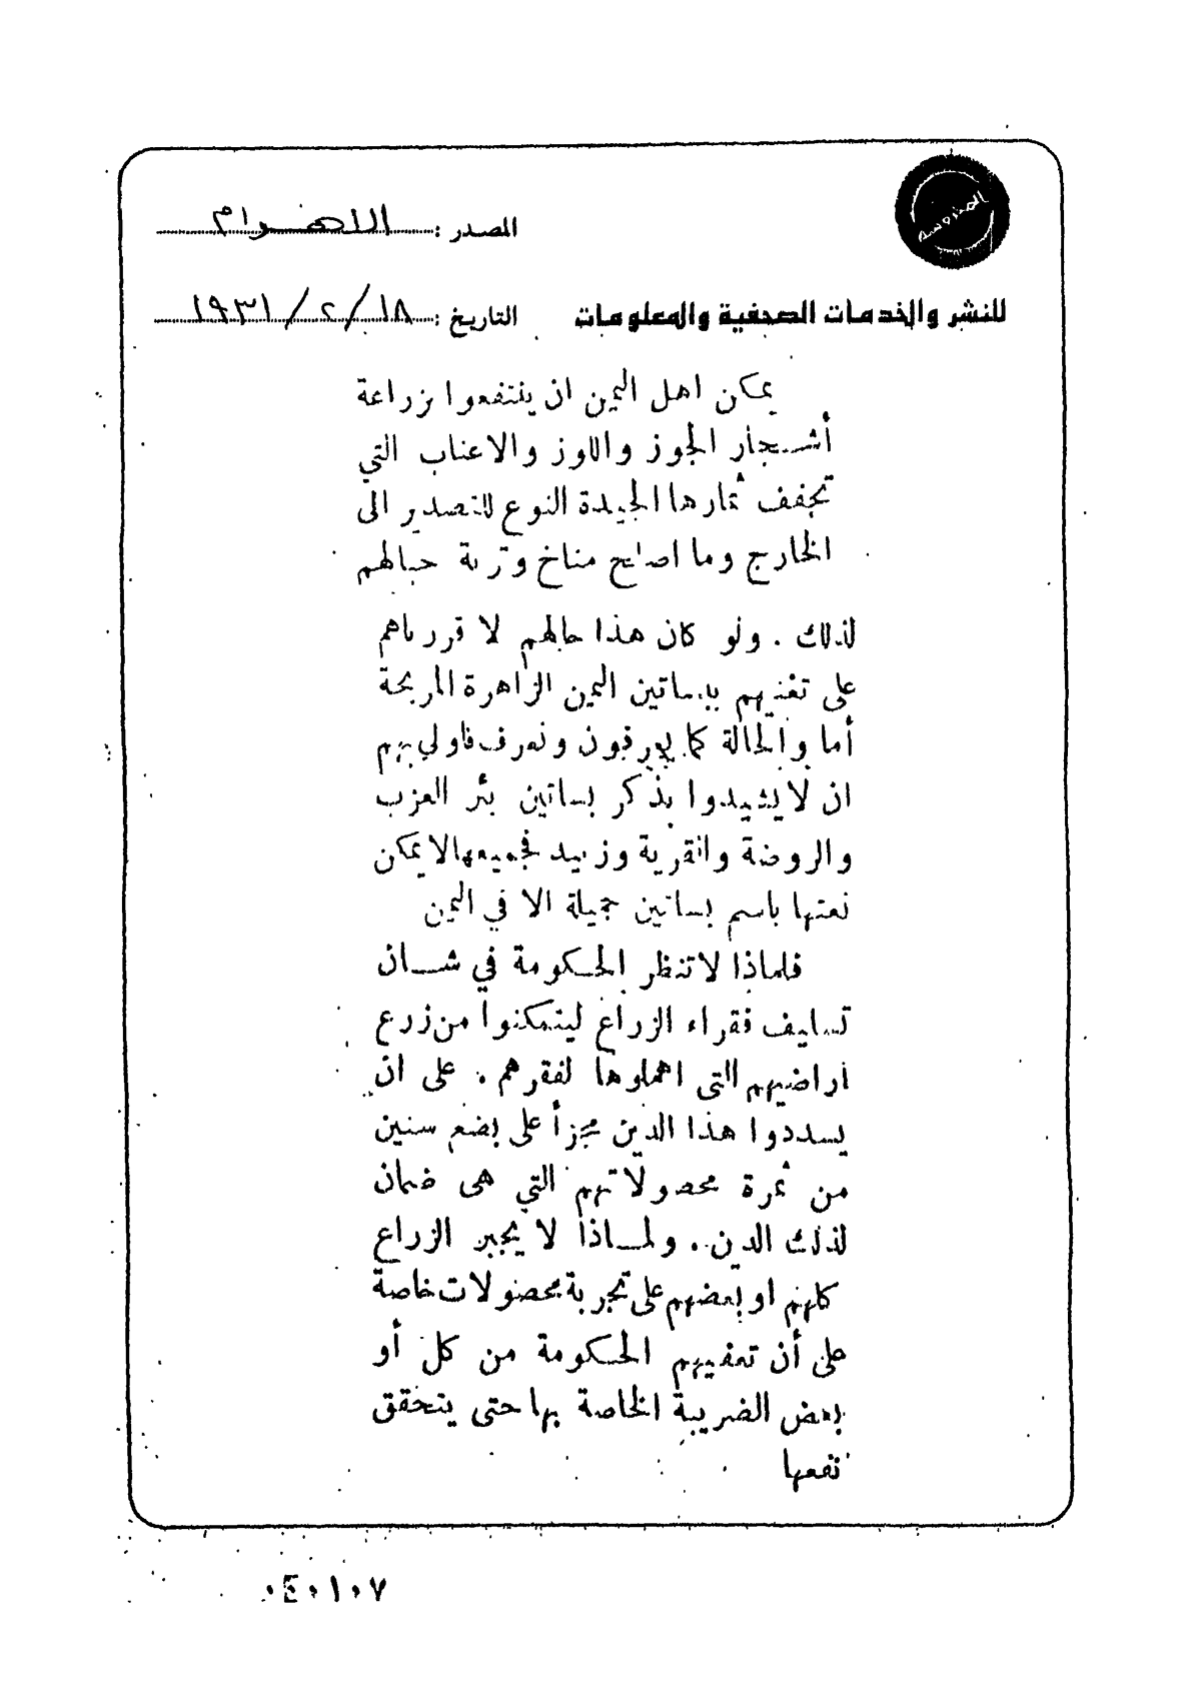 المحروسة
المصدر : الاهرام
للنشر والخدمات الصحفية والمعلومات
التاريخ : ١٨/٢/١٩٣١
يمكن اهل اليمن ان ينتفعوا بزراعة
أشجار الجوز واللوز والاعناب التي
تجفف ثمارها الجيدة النوع للتصدير الى
الخارج وما اصلح مناخ وتربة جبالهم
لذلك . ولو كان هذا حالهم لا قررناهم
على تغنيهم ببساتين اليمن الزاهرة المربحة
أما والحالة كما يعرفون ونعرف فاولى بهم
ان لا يشيدوا بذكر بساتين بئر العزب
والروضة والقرية وزبيد فجميعها لا يمكن
نعتها باسم بساتين جميلة الا في اليمن
فلماذا لا تنظر الحكومة في شان
تسليف فقراء الزراع ليتمكنوا من زرع
اراضيهم التى اهملوها لفقرهم . على ان
يسددوا هذا الدين مجزأ على بضع سنين
من ثمرة محصولاتهم التي هى ضمان
لذلك الدين . ولماذا لا يجبر الزراع
كلهم او بعضهم على تجربة محصولات خاصة
على أن تعفيهم الحكومة من كل أو
بعض الضريبة الخاصة بها حتى يتحقق
نفعها
٠٤٠١٠٧